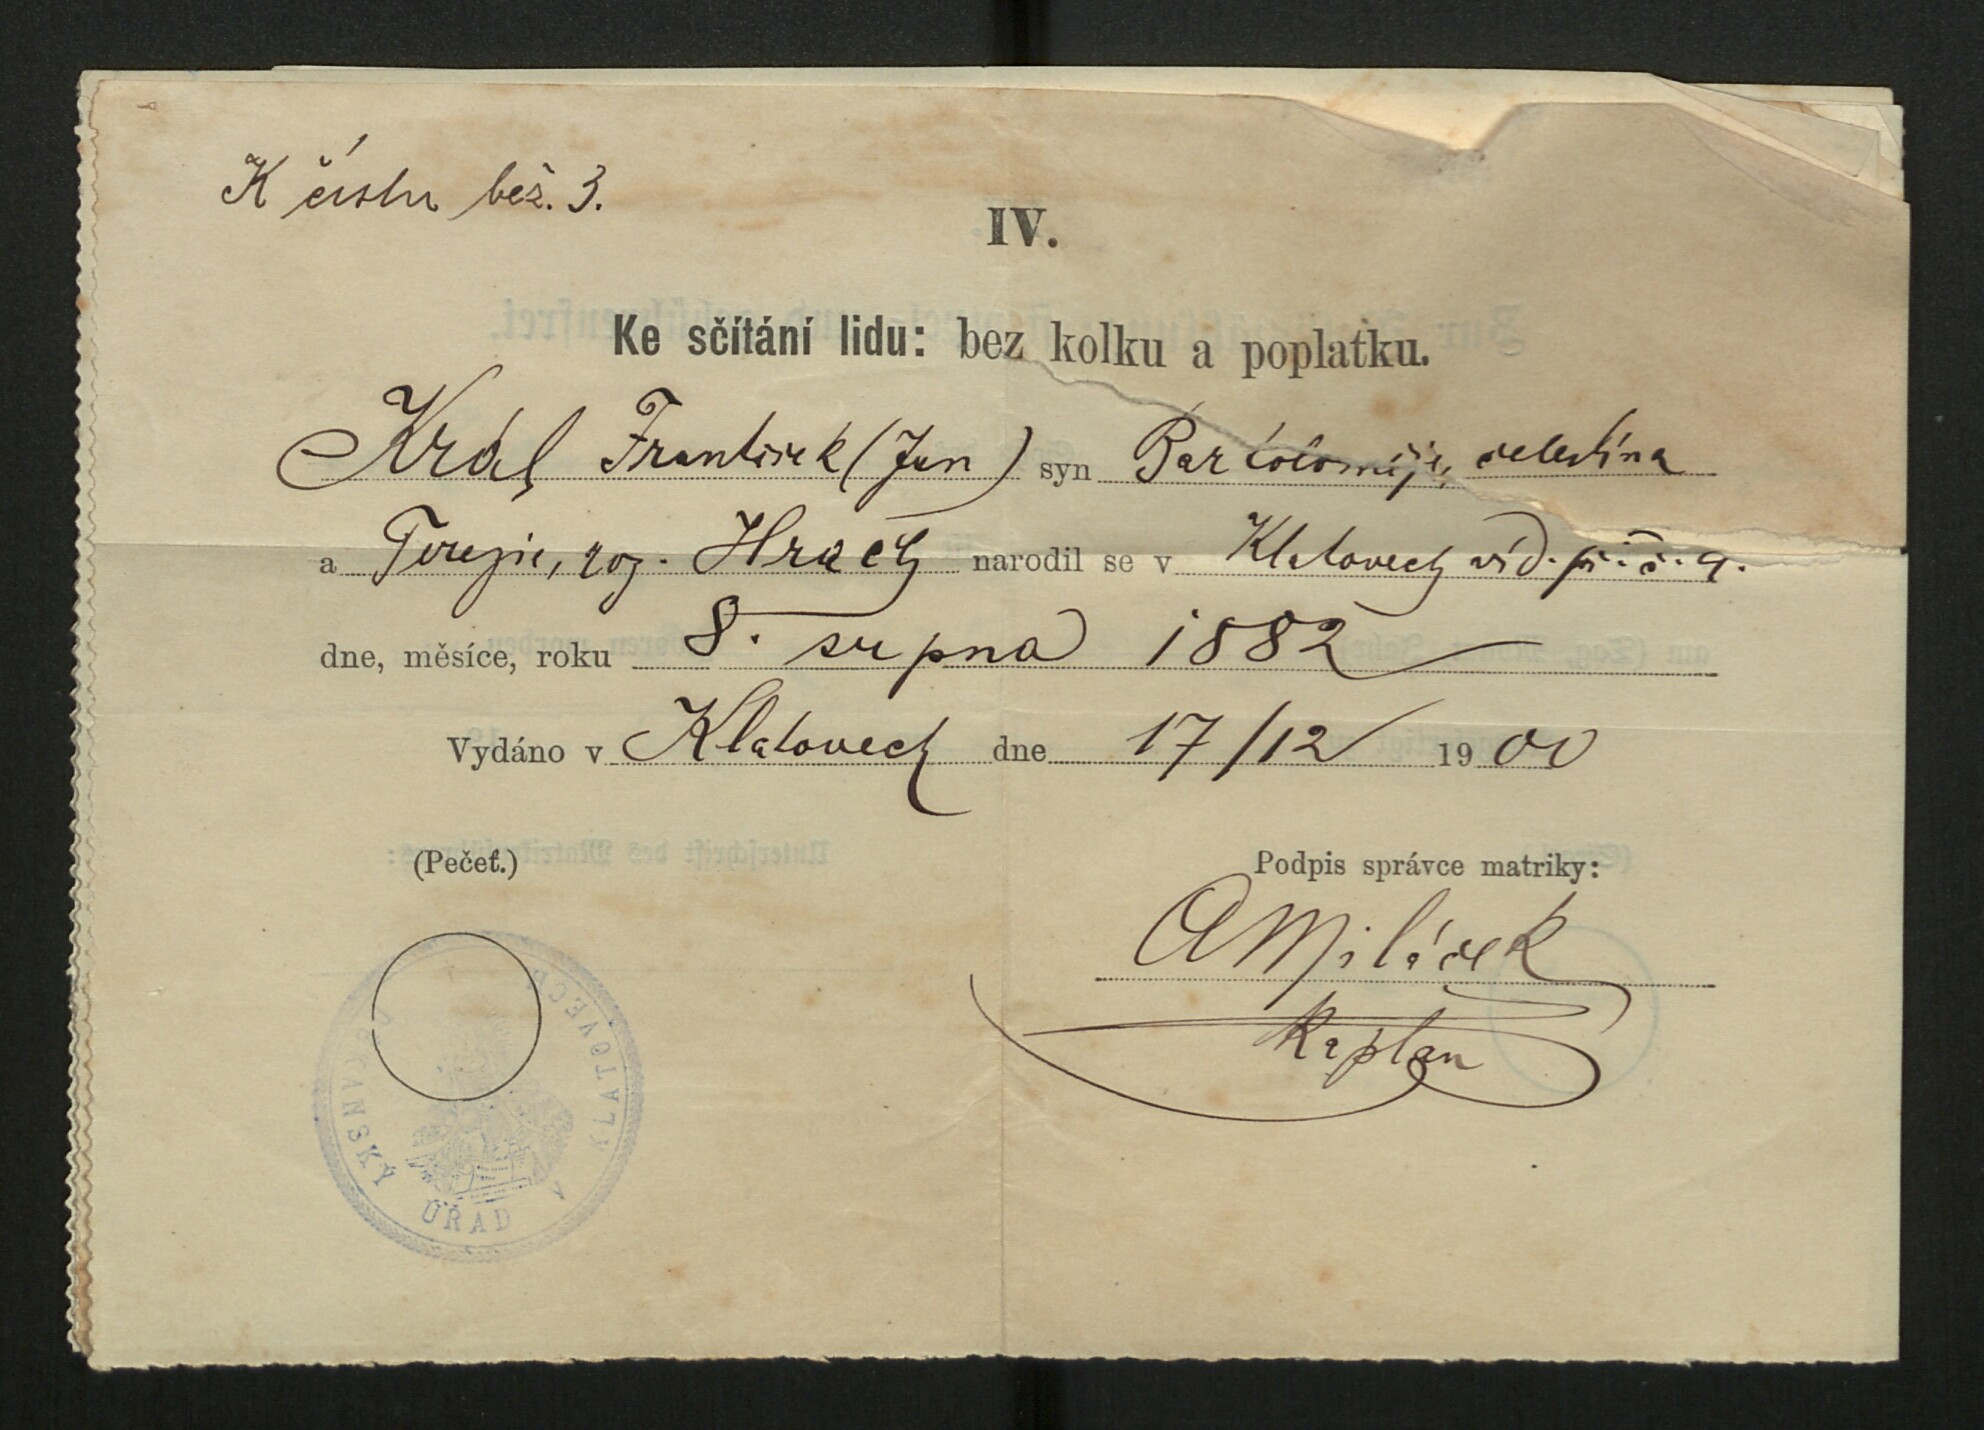 K číslu běž. 3.
IV.
Ke sčítání lidu: bez kolku a poplatku.
Král František (Jan) syn Bartoloměje, čeledína
a Terezie, roz. Hrach narodil se v Klatovech víd. př. č. 9.
dne, měsíce, roku 8. srpna 1882
Vydáno v Klatovech dne 17/12 1900
(Pečeť.)
Podpis správce matriky:
A Miláček
kaplan
DĚKANSKÝ ÚŘAD V KLATOVECH